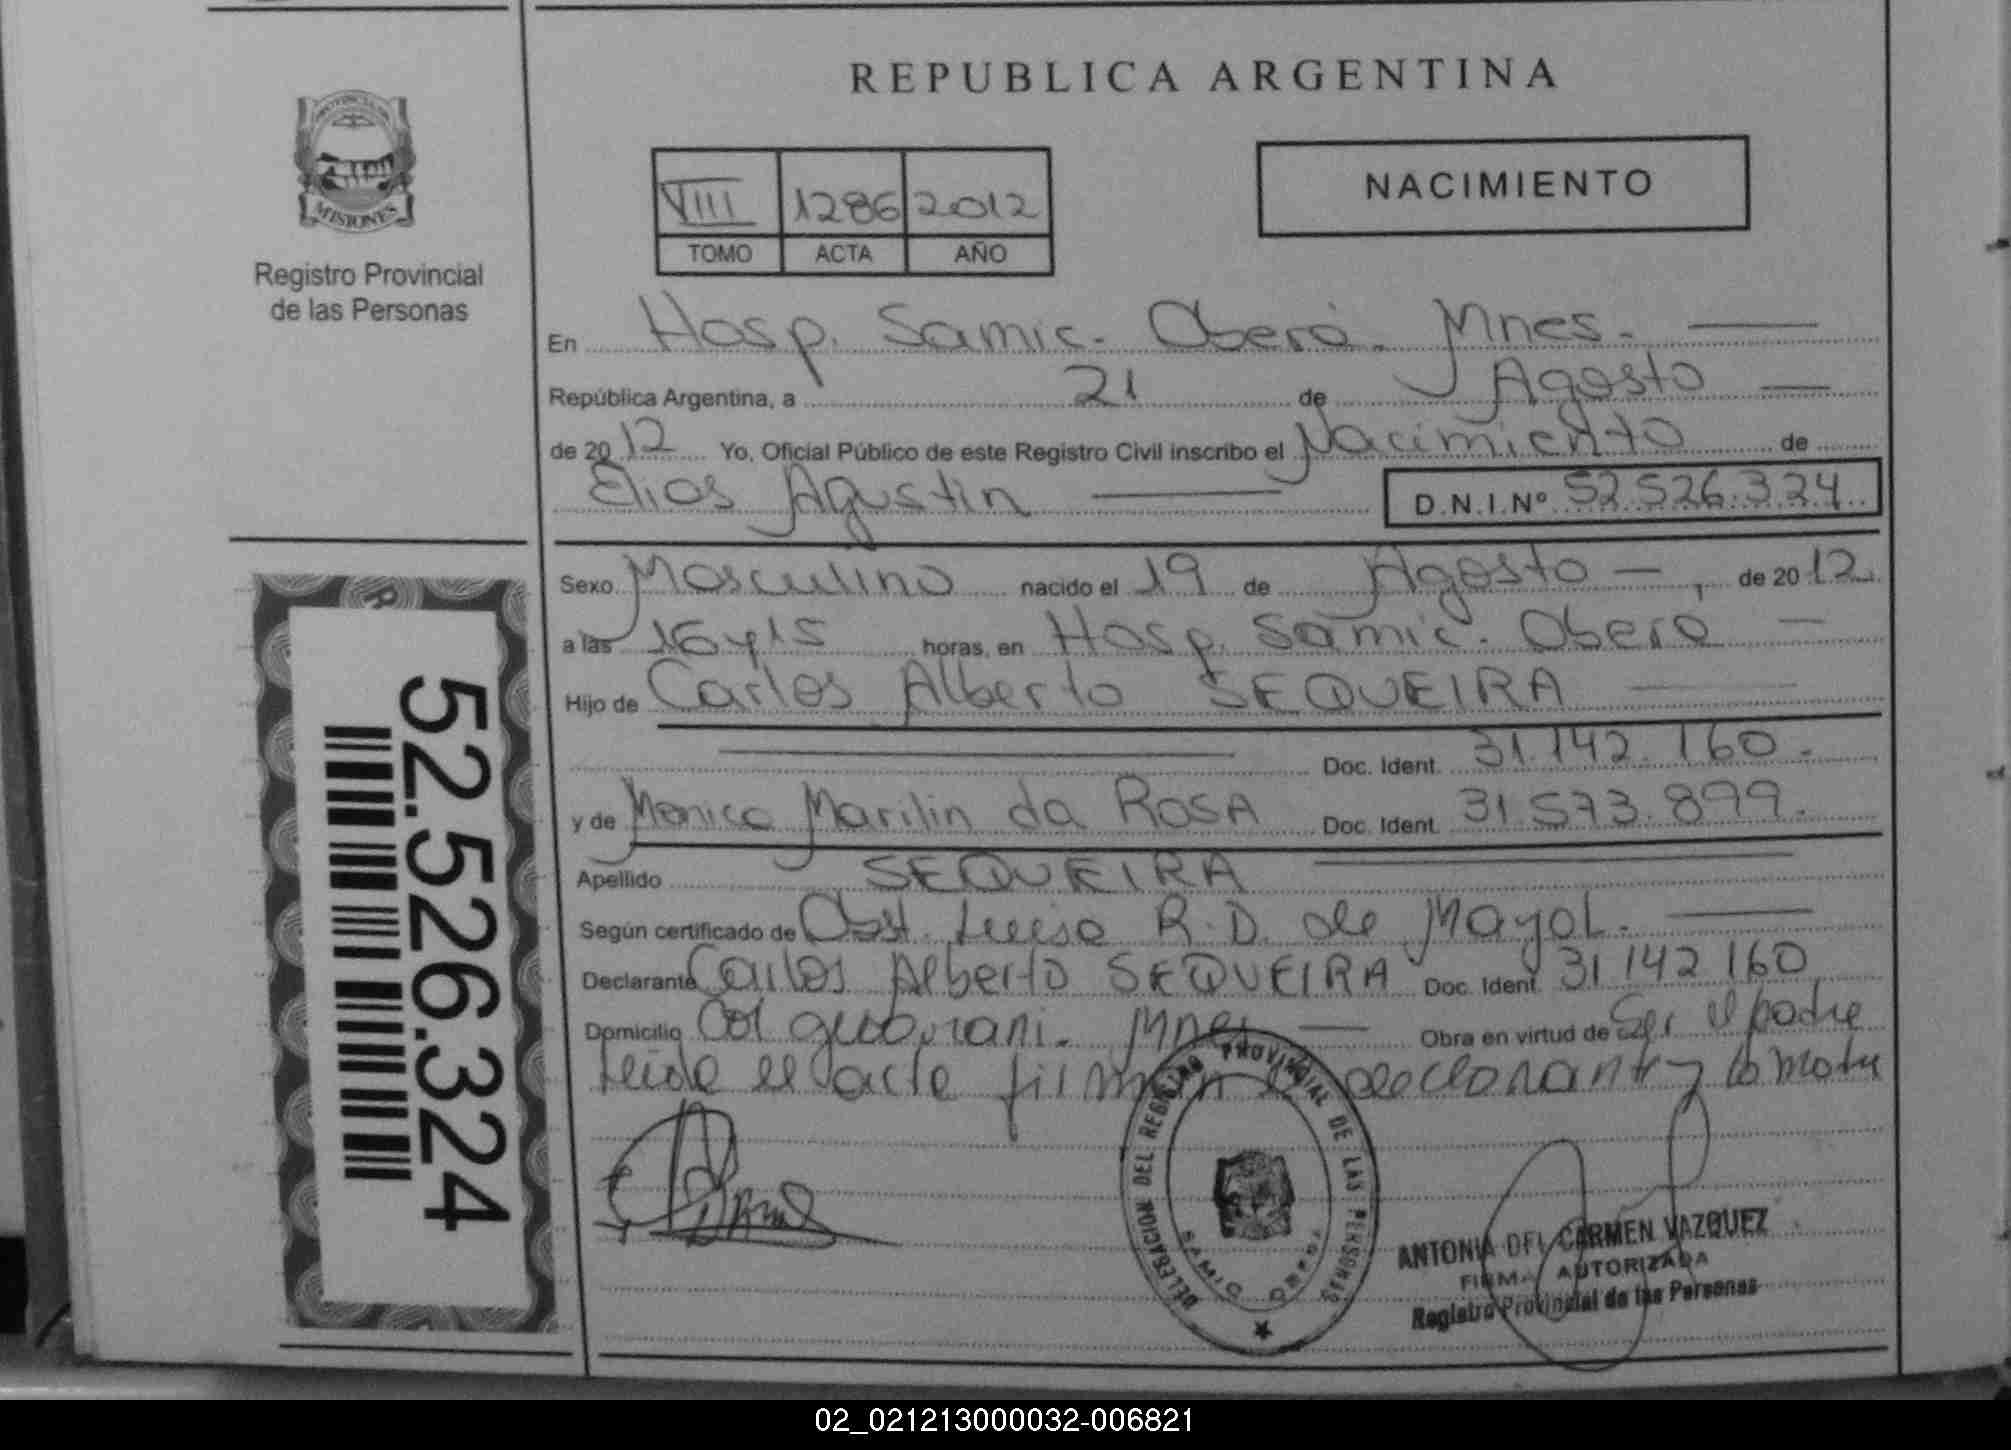 REPUBLICA ARGENTINA
MISIONES
Registro Provincial
de las Personas
VIII 1286 2012
TOMO ACTA AÑO
NACIMIENTO
En Hosp. Samic. Oberá. Mnes.
República Argentina, a 21 de Agosto
de 2012 Yo, Oficial Público de este Registro Civil inscribo el Nacimiento de
Elias Agustin D.N.I.Nº 52.526.324
Sexo Masculino nacido el 19 de Agosto, de 2012
a las 16 y 15 horas, en Hosp. Samic. Obera
Hijo de Carlos Alberto SEQUEIRA
Doc. Ident. 31.142.160.
y de Monica Marilin da ROSA Doc. Ident. 31.573.899.
Apellido SEQUEIRA
Según certificado de Obst. Luisa R.D. de Mayol.
Declarante Carlos Alberto SEQUEIRA Doc. Ident. 31 142 160
Domicilio Col guaurani. Mnes Obra en virtud de Ser el padre
Leida el acta firman el declarante y la madre
52.526.324
DELEGACION DEL REGISTRO PROVINCIAL DE LAS PERSONAS
SAMIC OBERA
ANTONIA DEL CARMEN VAZQUEZ
FIRMA AUTORIZADA
Registro Provincial de las Personas
02_021213000032-006821